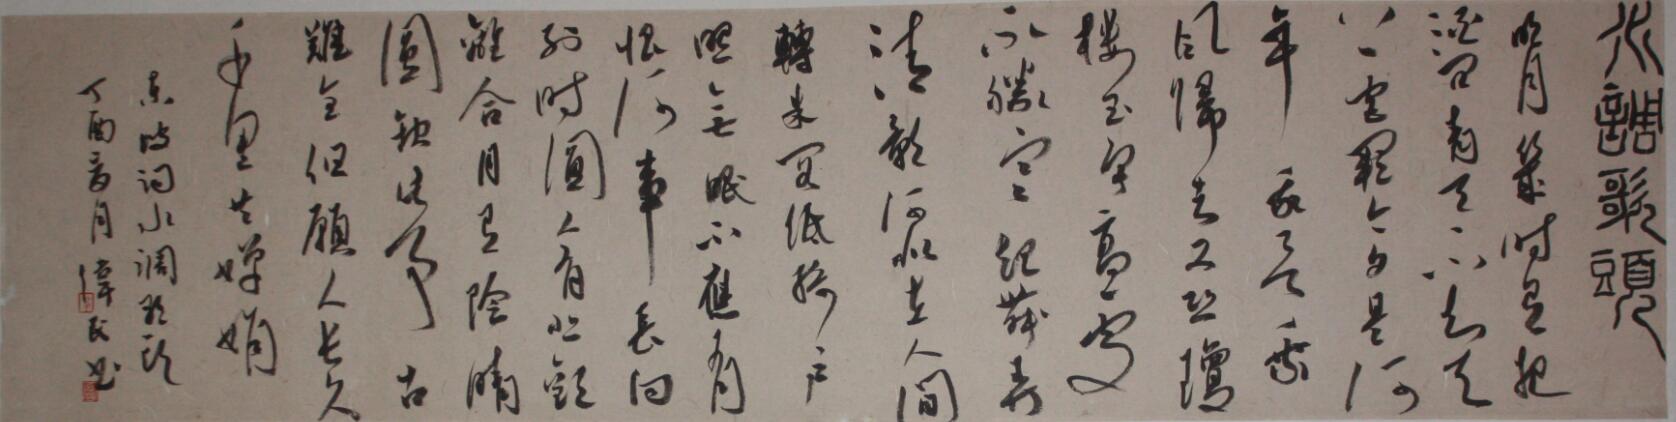 水調歌頭
明月幾时有把
酒问青天不知天
上宫阙今夕是何
年我欲乘
风歸去又恐瓊
樓玉宇高處
不勝寒起舞弄
清影何似在人間
轉朱閣低綺户
照無眠不應有
恨何事長向
别时圓人有悲歡
離合月有陰晴
圓缺此事古
難全但願人長久
千里共嬋娟
东坡词水调歌头
丁酉月偉民书